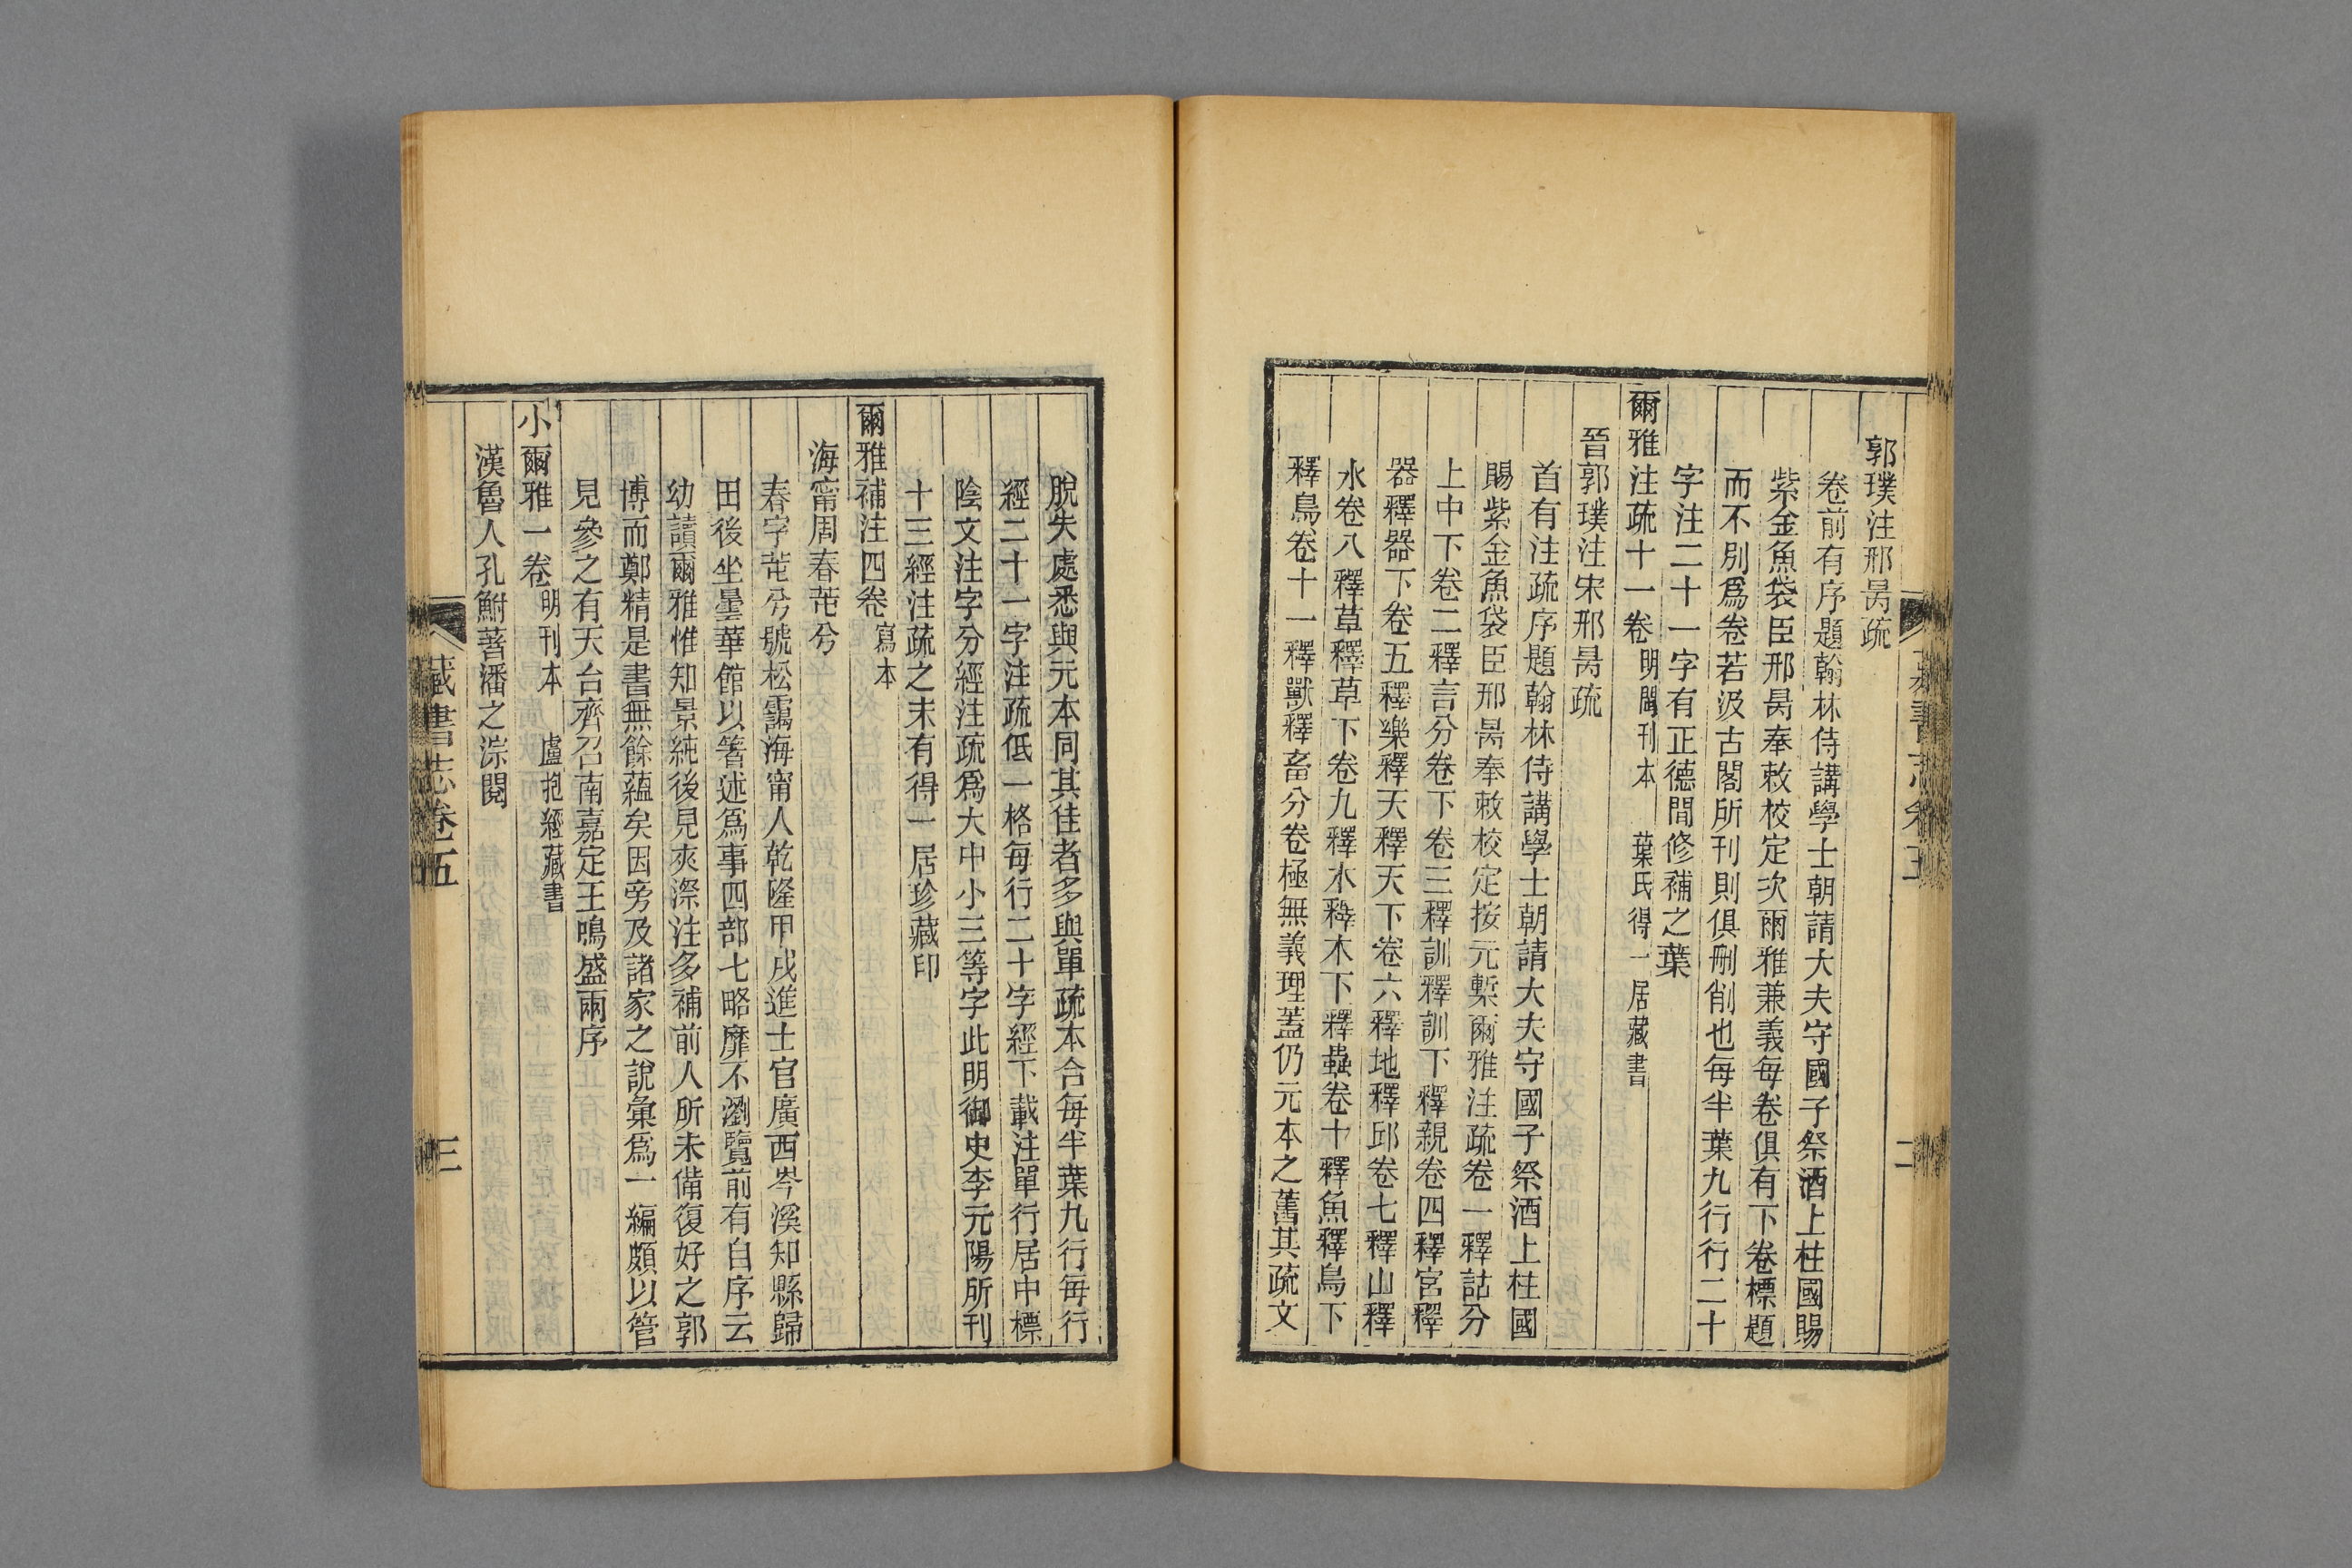 郭璞注邢昺疏
卷前有序題翰林侍講學士朝請大夫守國子祭酒上柱國賜
紫金魚袋臣邢昺奉敕校定次爾雅兼義每卷俱有下卷標題
而不別爲卷若汲古閣所刊則俱刪削也每半葉九行行二十
字注二十一字有正德間修補之葉
爾雅注疏十一卷 明閩刊本 葉氏得一居藏書
晉郭璞注宋邢昺疏
首有注疏序題翰林侍講學士朝請大夫守國子祭酒上柱國
賜紫金魚袋臣邢昺奉敕校定按元槧爾雅注疏卷一釋詁分
上中下卷二釋言分卷下卷三釋訓釋訓下釋親卷四釋宮釋
器釋器下卷五釋樂釋天釋天下卷六釋地釋邱卷七釋山釋
水卷八釋草釋草下卷九釋木釋木下釋蟲卷十釋魚釋鳥下
釋鳥卷十一釋獸釋畜分卷極無義理蓋仍元本之舊其疏文
脫失處悉與元本同其佳者多與單疏本合每半葉九行每行
經二十一字注疏低一格每行二十字經下載注單行居中標
陰文注字分經注疏爲大中小三等字此明御史李元陽所刊
十三經注疏之末有得一居珍藏印
爾雅補注四卷 寫本
海甯周春芚兮
春字芚兮號松靄海甯人乾隆甲戌進士官廣西岑溪知縣歸
田後坐曇華館以箸述爲事四部七略靡不瀏覽前有自序云
幼讀爾雅惟知景純後見夾漈注多補前人所未備復好之郭
博而鄭精是書無餘蘊矣因旁及諸家之說彙爲一編頗以管
見參之有天台齊召南嘉定王鳴盛兩序
小爾雅一卷 明刊本 盧抱經藏書
漢魯人孔鮒著潘之淙閱
藏書志卷五
三